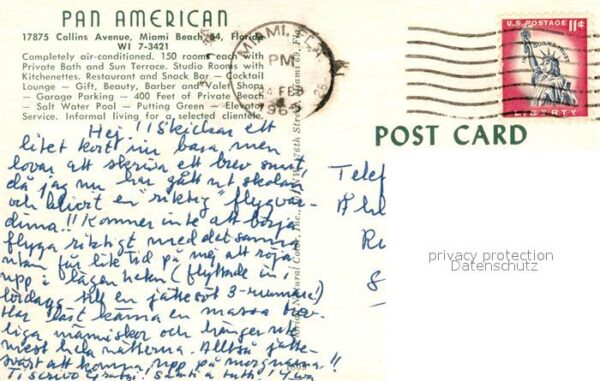 PAN AMERICAN
17875 Collins Avenue, Miami Beach 54, Florida
WI 7-3421
Completely air-conditioned. 150 rooms each with
Private Bath and Sun Terrace. Studio Rooms with
Kitchenettes. Restaurant and Snack Bar — Cocktail
Lounge — Gift, Beauty, Barber and Valet Shops
— Garage Parking — 400 Feet of Private Beach
— Salt Water Pool — Putting Green — Elevator
Service. Informal living for a selected clientele.
MIAMI, FLA
PM
FEB
U.S. POSTAGE 11¢
IN GOD WE TRUST
LIBERTY
POST CARD
Hej!! Skickar ett
litet kort nu bara, men
lovar att skriva ett brev snart,
då jag nu har gått ut skolan
och blivit en "riktig" flygvär-
dinna!! Kommer inte att börja
flyga riktigt med det samma
utan får lite tid på mej att röja
upp i lägenheten (flyttade in i
lördags till en jättesöt 3-rummare!)
Har läst känna en massa trev-
liga människor och hänger ute
mest hela nätterna. Alltså jätte-
svårt att komma upp på morgnarna!!
Ti scrivo
tutti!
Telef
Ru
S
privacy protection
Datenschutz